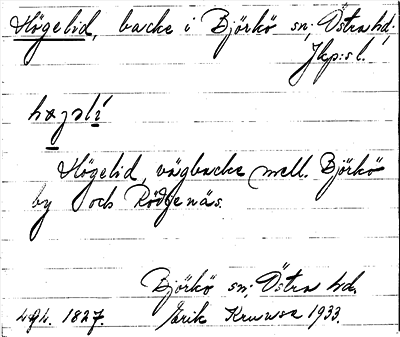 Högelid, backe i Björkö sn; Östra hd;
Jkp:s l.
høgəlí
Högelid, vägbacke mell. Björkö
by och Rödjenäs.
Björkö sn; Östra hd.
1827. Erik 1933.